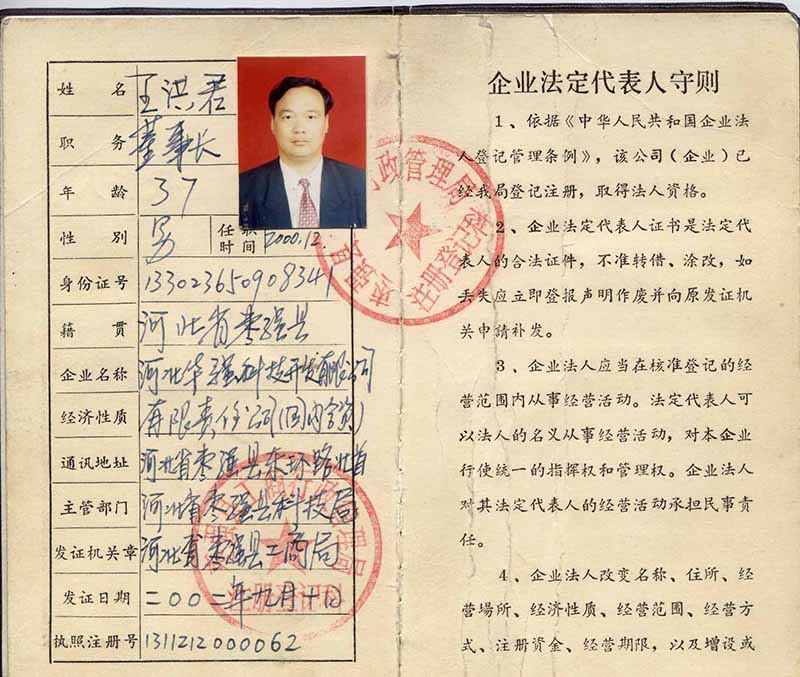 姓名 王洪君
职务 董事长
年龄 37
性别 男 任职时间 2000.12.
身份证号 133023650908341
籍贯 河北省枣强县
企业名称 河北华强科技开发有限公司
经济性质 有限责任公司(国内合资)
通讯地址 河北省枣强县东环路北首
主管部门 河北省枣强县科技局
发证机关章 河北省枣强县工商局
发证日期 二00二年九月十日
执照注册号 1311212000062
行政管理局
注册登记
企业法定代表人守则
1、依据《中华人民共和国企业法
人登记管理条例》,该公司(企业)已
经我局登记注册,取得法人资格。
2、企业法定代表人证书是法定代
表人的合法证件,不准转借、涂改,如
丢失应立即登报声明作废并向原发证机
关申請补发。
3、企业法人应当在核准登记的经
营范围内从事经营活动。法定代表人可
以法人的名义从事经营活动,对本企业
行使统一的指挥权和管理权。企业法人
对其法定代表人的经营活动承担民事责
任。
4、企业法人改变名称、住所、经
营场所、经济性质、经营范围、经营方
式、注册资金、经营期限,以及增设或